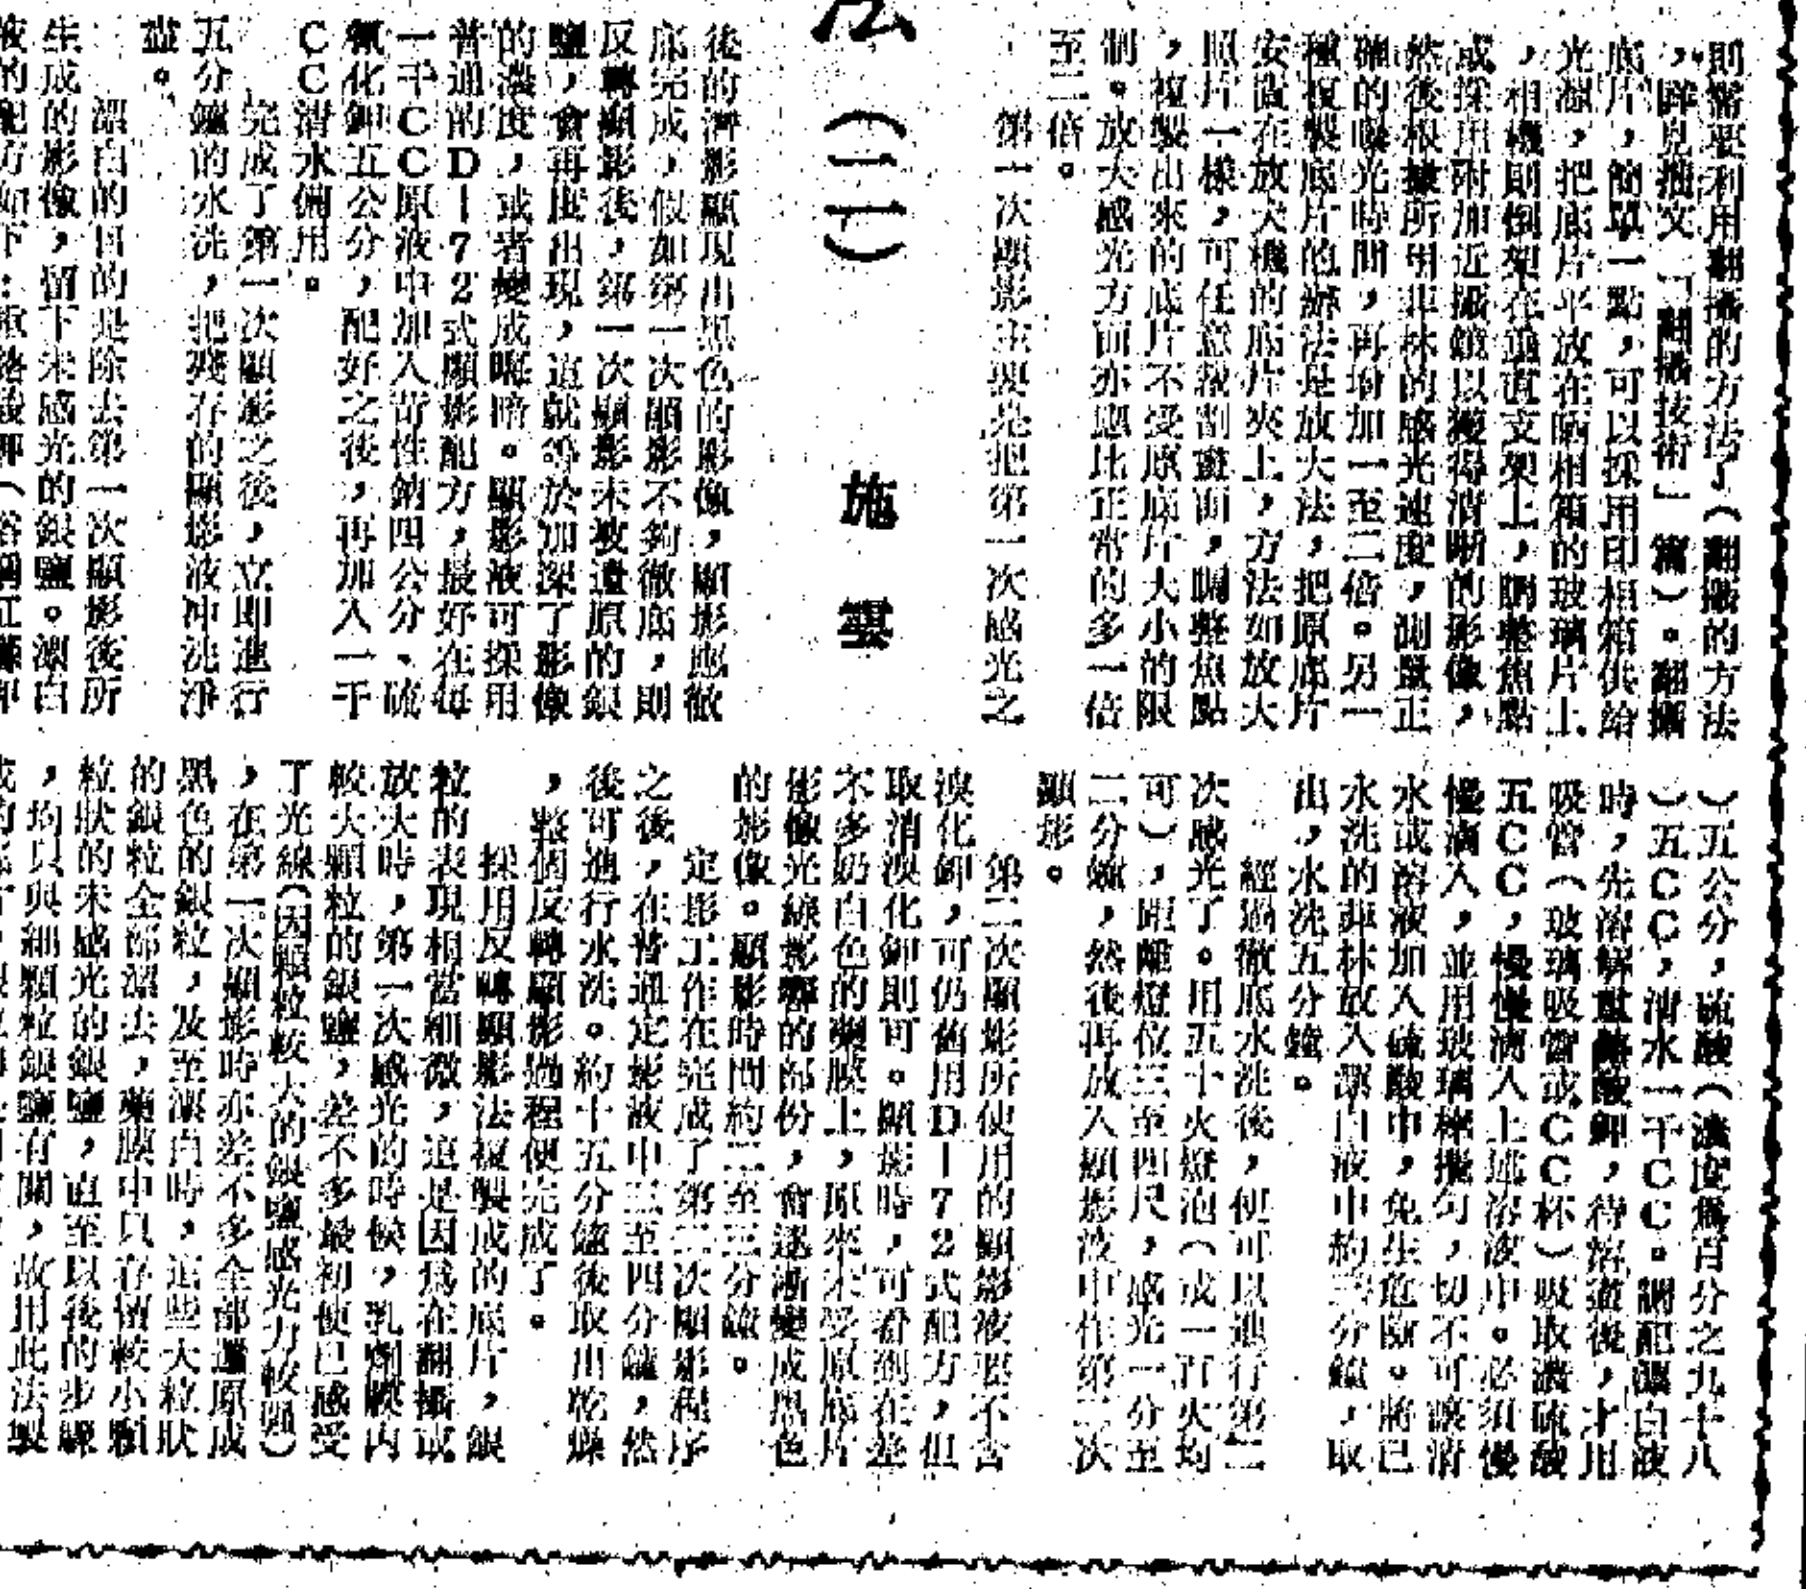 則需要利用翻攝的方法了(翻攝的方法
，詳見拙文「翻攝技術」篇)。翻攝
底片，簡單一點，可以採用印相箱供給
光源，把底片平放在晒相箱的玻璃片上
，相機則倒架在垂直支架上，調整焦點
或採用附加近攝鏡以獲得清晰的影像，
然後根據所用菲林的感光速度，測量正
確的曝光時間，再增加一至二倍。另一
種複製底片的辦法是放大法，把原底片
安置在放大機的底片夾上，方法如放大
照片一樣，可任意裁割畫面，調整焦點
，複製出來的底片不受原底片大小的限
制。放大感光方面亦應比正常的多一倍
至二倍。
第一次顯影主要是把第一次感光之
法(二)
施雲
後的潛影顯現出黑色的影像，顯影應徹
底完成，假如第一次顯影不夠徹底，則
反轉顯影後，第一次顯影未被還原的銀
鹽，會再度出現，這就等於加深了影像
的濃度，或者變成曚暗。顯影液可採用
普通的D—72式顯影配方，最好在每
一千CC原液中加入苛性鈉四公分、硫
氰化鉀五公分，配好之後，再加入一千
CC清水備用。
完成了第一次顯影之後，立即進行
五分鐘的水洗，把殘存的顯影液冲洗淨
盡。
漂白的目的是除去第一次顯影後所
生成的影像，留下未感光的銀鹽。漂白
液的配方如下：重鉻酸鉀(俗稱紅礬鉀
)五公分，硫酸(濃度爲百分之九十八
)五CC，清水一千CC。調配漂白液
時，先溶解重鉻酸鉀，待溶後，才用
吸管(玻璃吸管或CC杯)吸取濃硫酸
五CC，慢慢滴入上述溶液中。必須慢
慢滴入，並用玻璃棒攪勻，切不可讓清
水或溶液加入硫酸中，免生危險。將已
水洗的菲林放入漂白液中約三分鐘，取
出，水洗五分鐘。
經過徹底水洗後，便可以進行第二
次感光了。用五十火燈泡(或一百火均
可)，距離燈位三至四尺，感光一分至
二分鐘，然後再放入顯影液中作第二次
顯影。
第二次顯影所使用的顯影液要不含
溴化鉀，可仍舊用D—72式配方，但
取消溴化鉀則可。顯影時，可看到在差
不多奶白色的藥膜上，原來未受原底片
影像光線影響的部份，會逐漸變成黑色
的影像。顯影時間約二至三分鐘。
定影工作在完成了第二次顯影程序
之後，在普通定影液中三至四分鐘，然
後可進行水洗。約十五分鐘後取出乾燥
，整個反轉顯影過程便完成了。
採用反轉顯影法複製成的底片，銀
粒的表現相當細微，這是因爲在翻攝或
放大時，第一次感光的時候，乳劑膜內
較大顆粒的銀鹽，差不多最初便已感受
了光線(因顆粒較大的銀鹽感光力較強)
，在第一次顯影時亦差不多全部還原成
黑色的銀粒，及至漂白時，這些大粒狀
的銀粒全部漂去，藥膜中只存留較小顆
粒狀的未感光的銀鹽，直至以後的步驟
，均只與細顆粒銀鹽有關，故用此法製